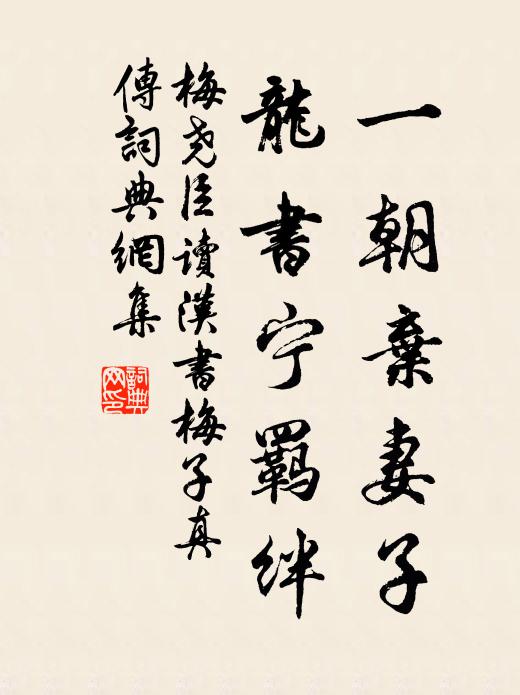 一朝棄妻子
龍書宁羈絆
梅尧臣讀漢書梅子真
傳詞典網集
詞典网印